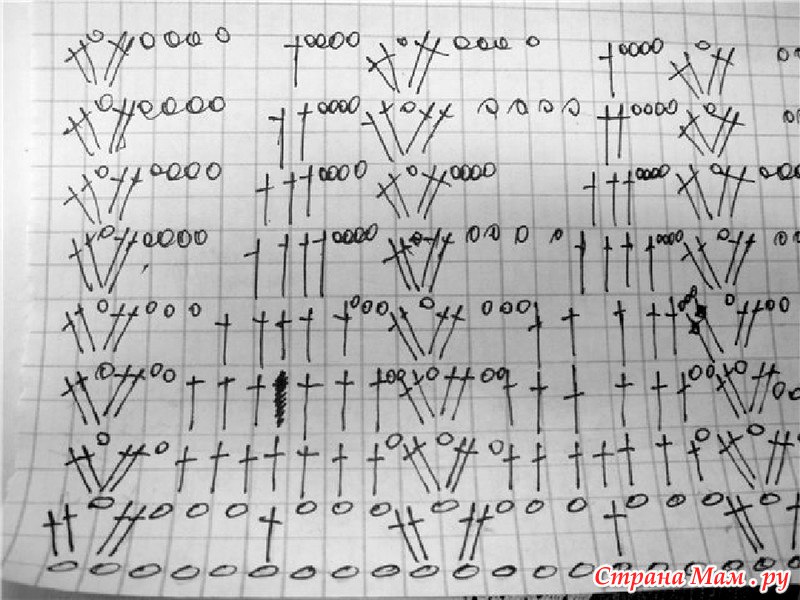 Страна Мам.ру